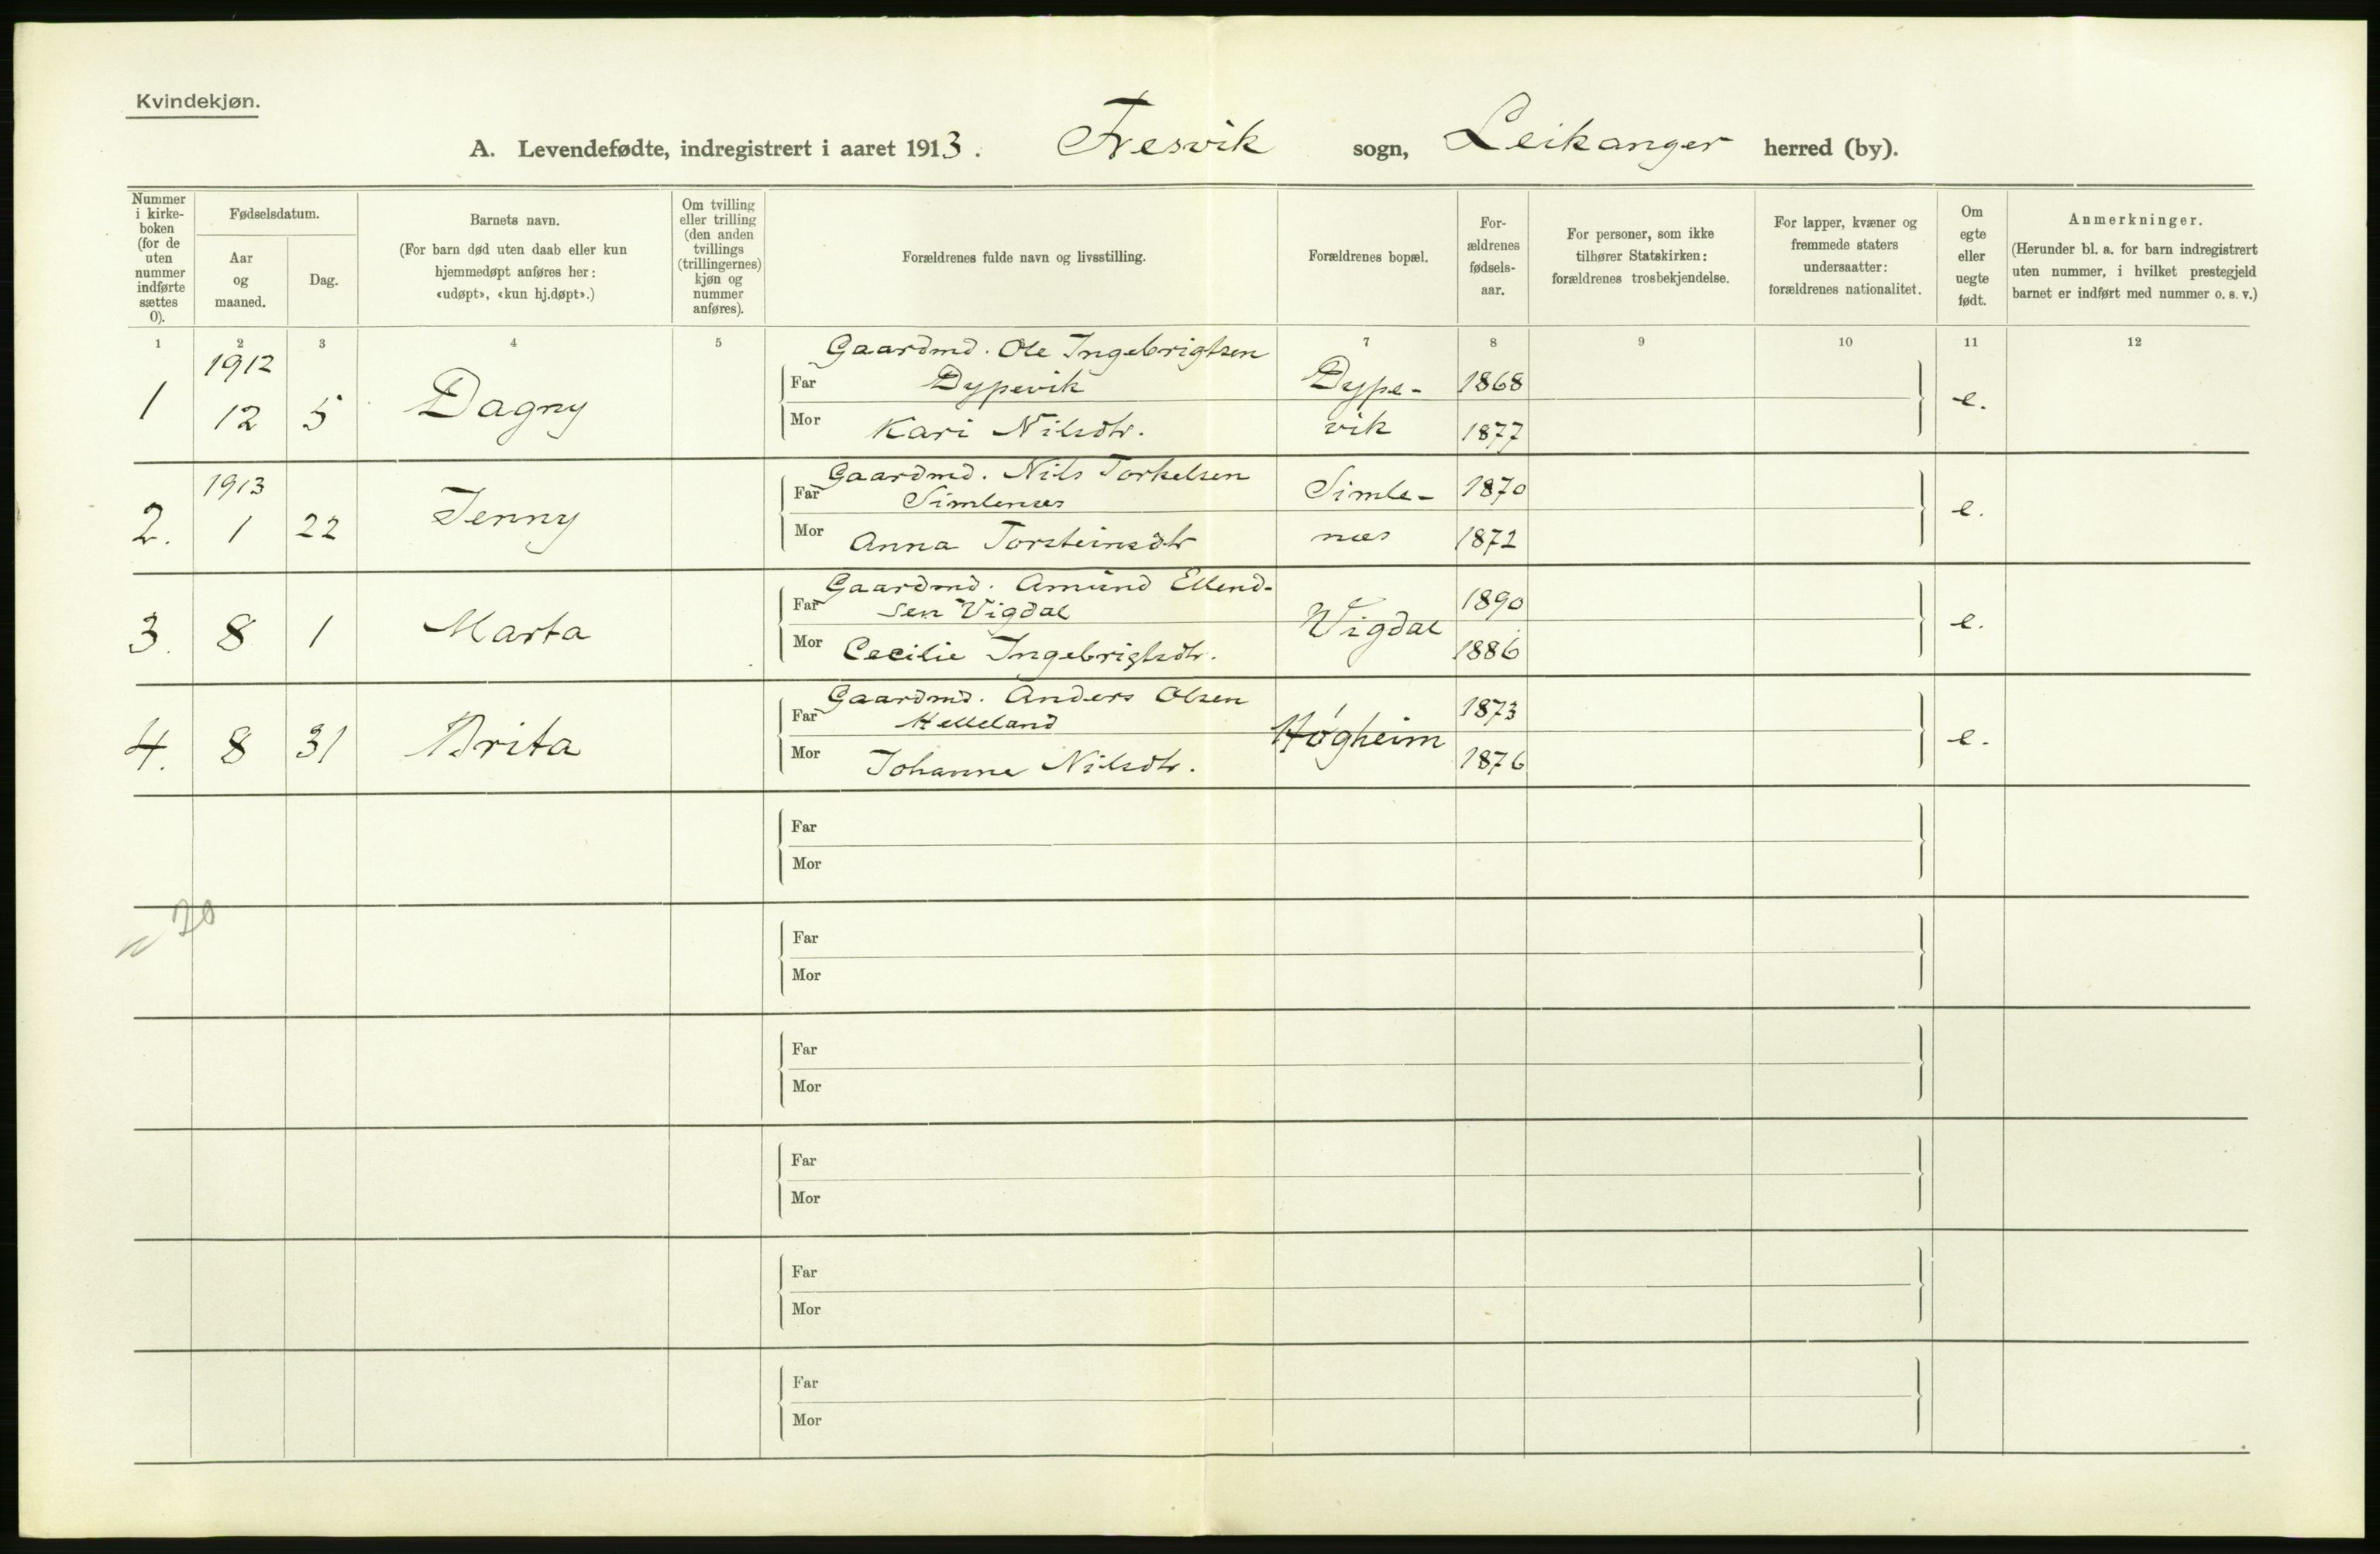 Kvindekjøn.
A. Levendefødte, indregistrert i aaret 1913. Fresvik sogn, Leikanger herred (by).
Nummer i kirkeboken (for de uten nummer indførte sættes 0).
Fødselsdatum.
Aar og maaned.
Dag.
Barnets navn.
(For barn død uten daab eller kun hjemmedøpt anføres her: «udøpt», «kun hj.døpt».)
Om tvilling eller trilling (den anden tvillings (trillingernes) kjøn og nummer anføres).
Forældrenes fulde navn og livsstilling.
Forældrenes bopæl.
Forældrenes fødselsaar.
For personer, som ikke tilhører Statskirken: forældrenes trosbekjendelse.
For lapper, kvæner og fremmede staters undersaatter: forældrenes nationalitet.
Om egte eller uegte født.
Anmerkninger.
(Herunder bl. a. for barn indregistrert uten nummer, i hvilket prestegjeld barnet er indført med nummer o. s. v.)
1 2 3 4 5 7 8 9 10 11 12
1 1912 12 5 Dagny
Gaardmd. Ole Ingebrigtsen
Far Dypevik Dype- 1868
Mor Kari Nilsdtr. vik 1877 e.
2. 1913 1 22 Jenny
Gaardmd. Nils Torkelsen
Far Simlenæs Simle- 1870
Mor Anna Torsteinsdtr næs 1872 e.
3. 8 1 Marta
Gaardmd. Amund Ellend-
Far sen Vigdal Vigdal 1890
Mor Cecilie Ingebrigtsdtr. 1886 e.
4. 8 31 Brita
Gaardmd. Anders Olsen
Far Helleland Høgheim 1873
Mor Johanne Nilsdtr. 1876 e.
Far
Mor
Far
Mor
Far
Mor
Far
Mor
Far
Mor
Far
Mor